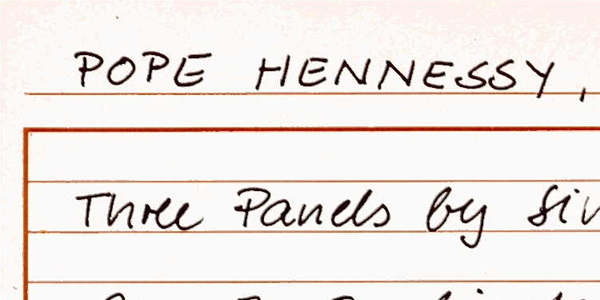 POPE HENNESSY,
Three Panels by